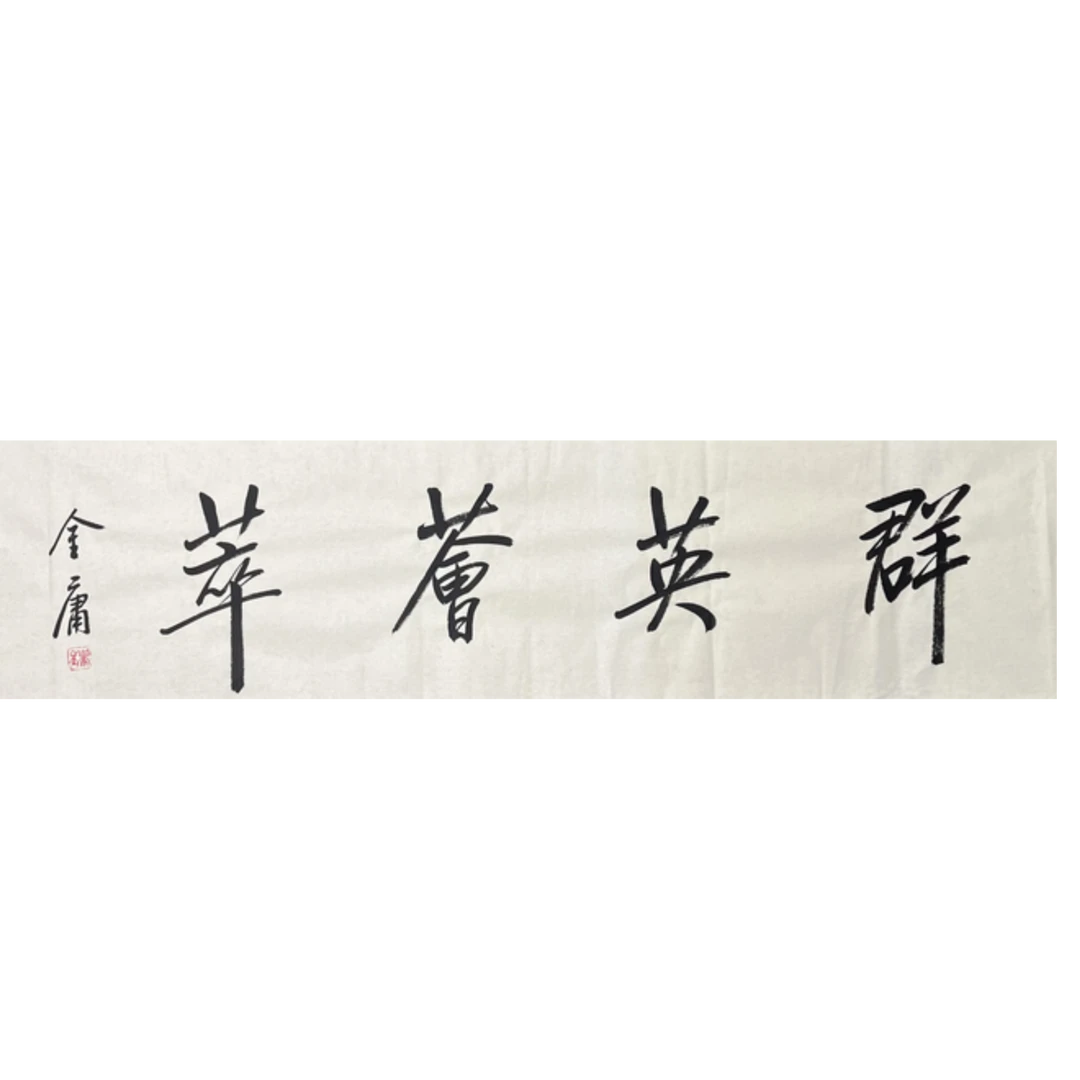 群英薈萃
金庸